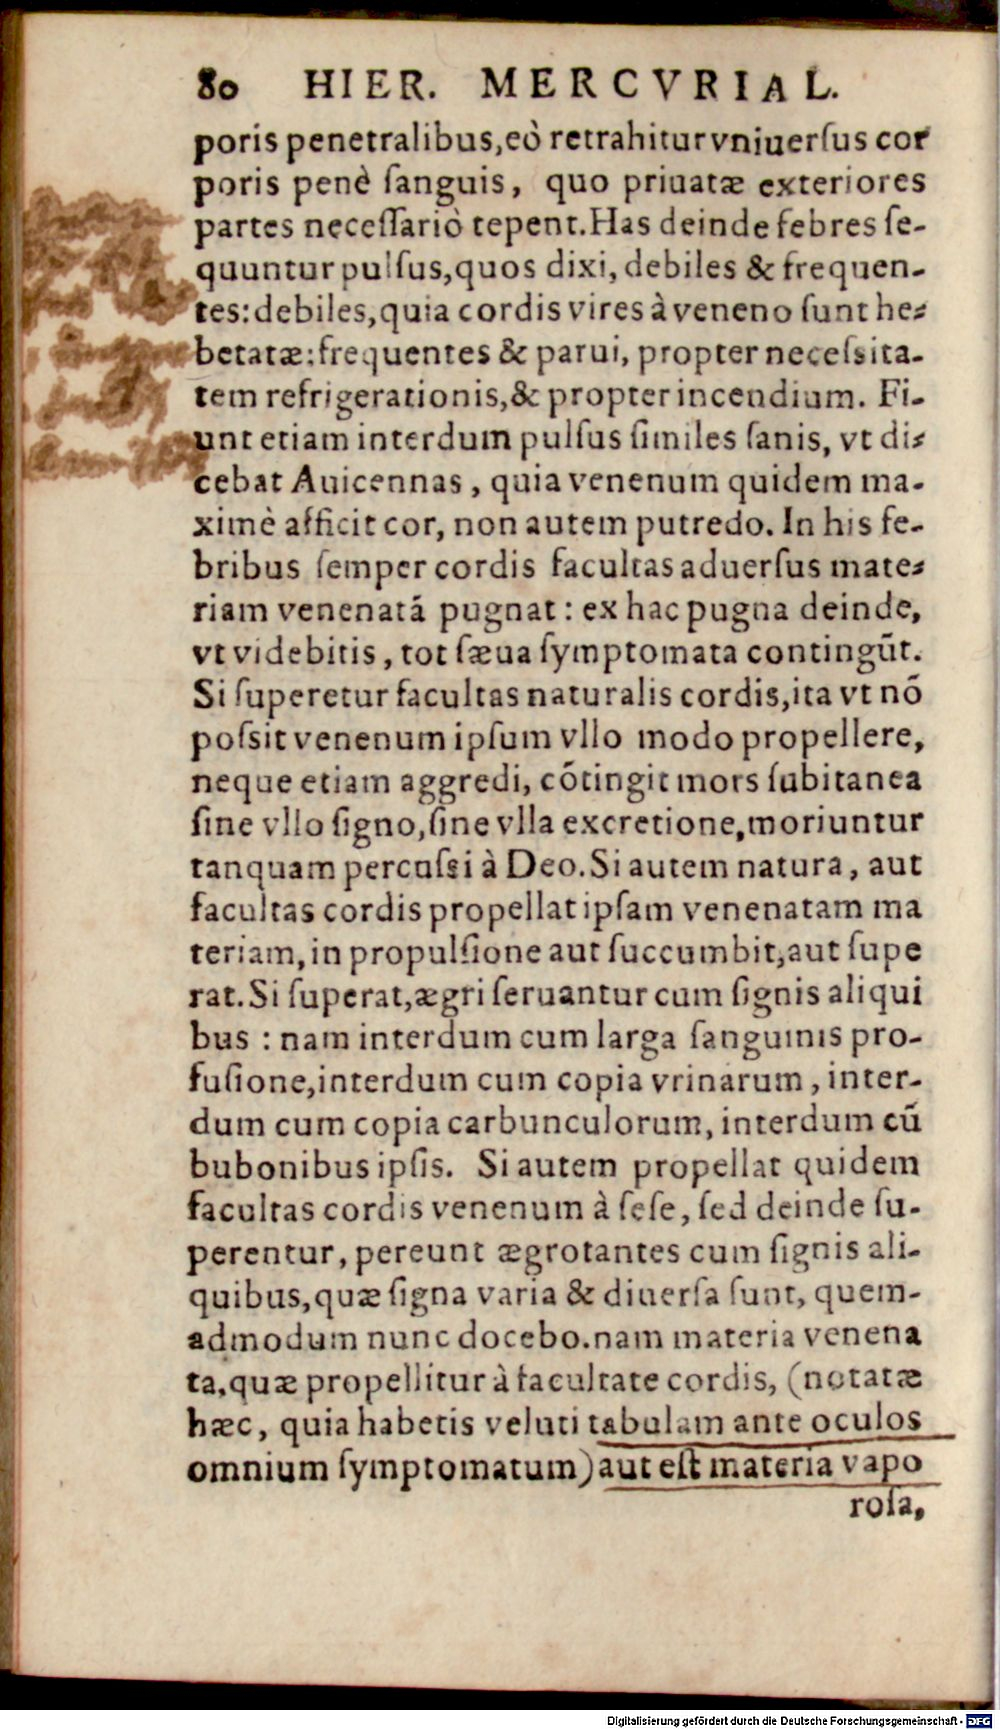 80 HIER. MERCVRIAL.
poris penetralibus,eò retrahitur vniuerſus cor
poris penè ſanguis, quo priuatæ exteriores
partes neceſſariò tepent. Has deinde febres ſe-
quuntur pulſus,quos dixi, debiles & frequen-
tes: debiles,quia cordis vires à veneno ſunt he-
betatæ: frequentes & parui, propter neceſsita-
tem refrigerationis,& propter incendium. Fi-
unt etiam interdum pulſus ſimiles ſanis, vt di-
cebat Auicennas, quia venenum quidem ma-
ximè afficit cor, non autem putredo. In his fe-
bribus ſemper cordis facultas aduerſus mate-
riam venenatã pugnat: ex hac pugna deinde,
vt videbitis, tot ſæua ſymptomata contingũt.
Si ſuperetur facultas naturalis cordis,ita vt nõ
poſsit venenum ipſum vllo modo propellere,
neque etiam aggredi, cõtingit mors ſubitanea
ſine vllo ſigno,ſine vlla excretione,moriuntur
tanquam percuſsi à Deo. Si autem natura, aut
facultas cordis propellat ipſam venenatam ma
teriam, in propulſione aut ſuccumbit,aut ſupe
rat. Si ſuperat,ægri ſeruantur cum ſignis aliqui
bus : nam interdum cum larga ſanguinis pro-
fuſione,interdum cum copia vrinarum, inter-
dum cum copia carbunculorum, interdum cũ
bubonibus ipſis. Si autem propellat quidem
facultas cordis venenum à ſeſe, ſed deinde ſu-
perentur, pereunt ægrotantes cum ſignis ali-
quibus,quæ ſigna varia & diuerſa ſunt, quem-
admodum nunc docebo. nam materia venena
ta,quæ propellitur à facultate cordis, (notatæ
hæc, quia habetis veluti tabulam ante oculos
omnium ſymptomatum) aut eſt materia vapo
roſa,
Digitalisierung gefördert durch die Deutsche Forschungsgemeinschaft - DFG